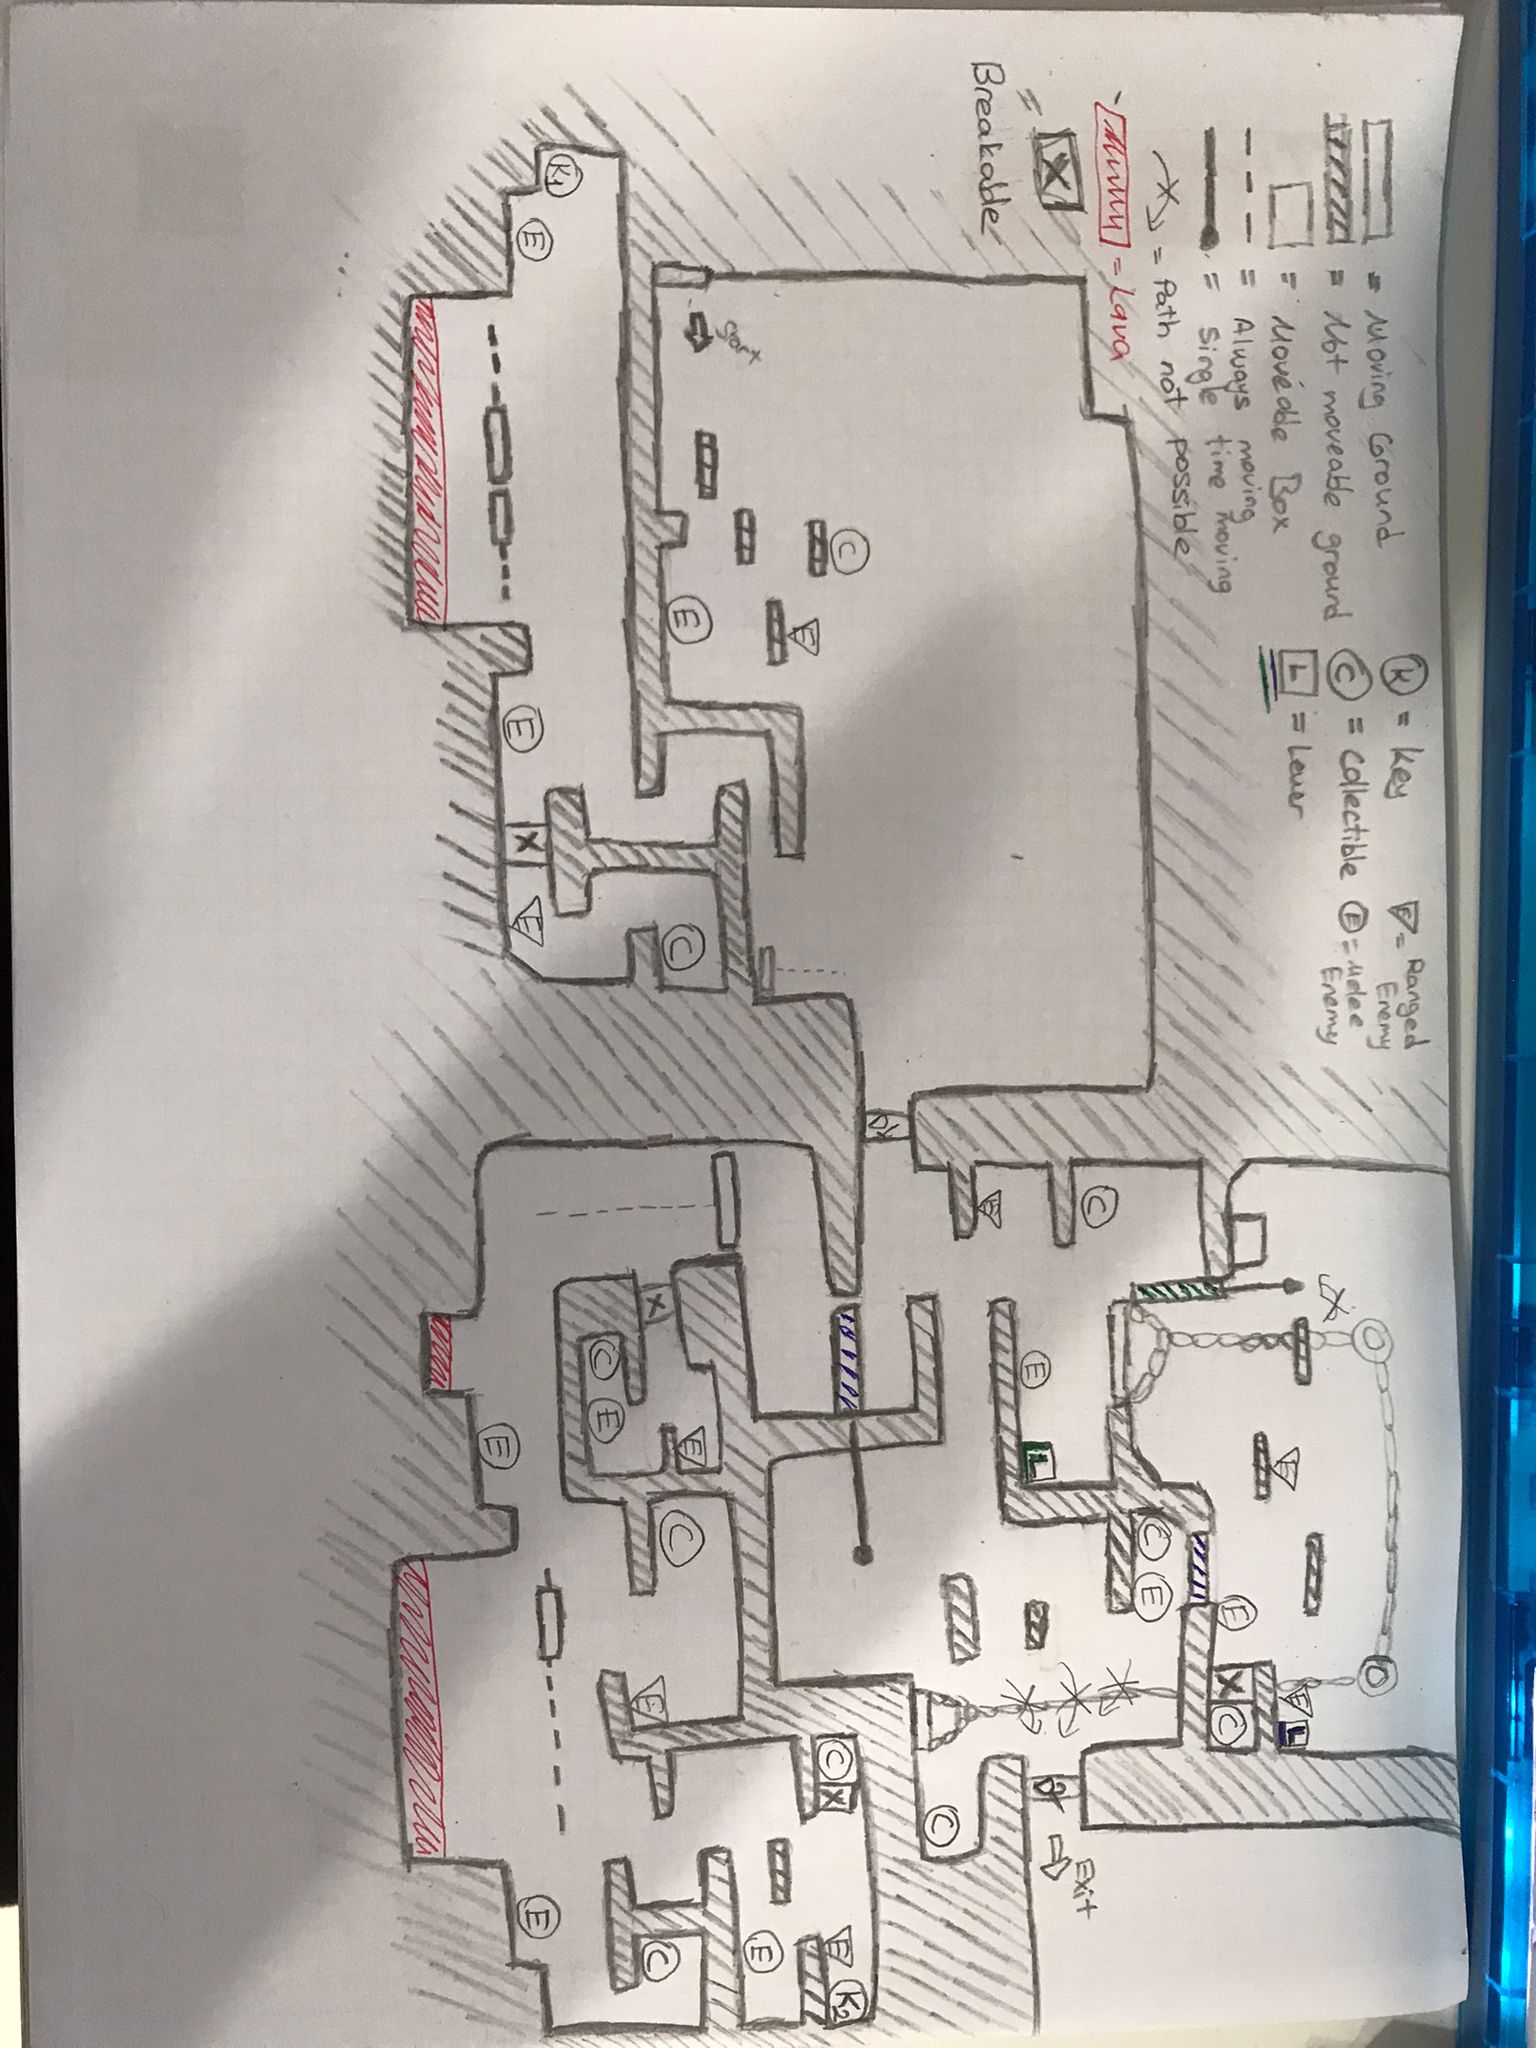 = Moving Ground
= Not moveable ground
= Moveable Box
= Always moving
= Single time moving
= Path not possible
= Lava
X
= Breakable
K = Key
C = Collectible
L = Lever
E = Ranged Enemy
E = Melee Enemy
E
L
E
E
X
C
C
E
C
E
L
Exit
E
C
C
E
C
X
E
K2
E
Start
E
E
C
E
C
E
C
X
C
E
K1
E
E
X
E
E
E